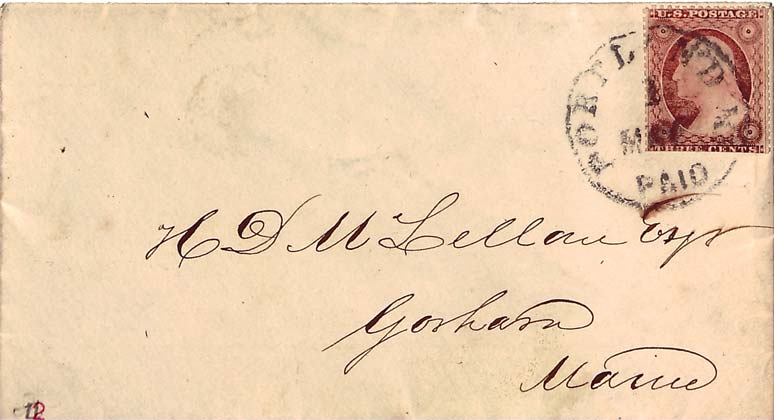 U.S. POSTAGE
THREE CENTS
PORTLAND
PAID
H D McLellan Esqr
Gorham
Maine